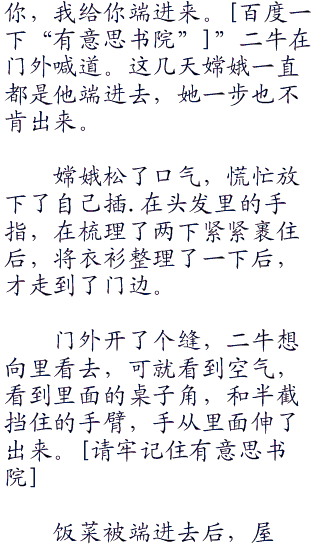 你，我给你端进来。[百度一
下“有意思书院”]”二牛在
门外喊道。这几天嫦娥一直
都是他端进去，她一步也不
肯出来。
嫦娥松了口气，慌忙放
下了自己插.在头发里的手
指，在梳理了两下紧紧裹住
后，将衣衫整理了一下后，
才走到了门边。
门外开了个缝，二牛想
向里看去，可就看到空气，
看到里面的桌子角，和半截
挡住的手臂，手从里面伸了
出来。[请牢记住有意思书
院]
饭菜被端进去后，屋